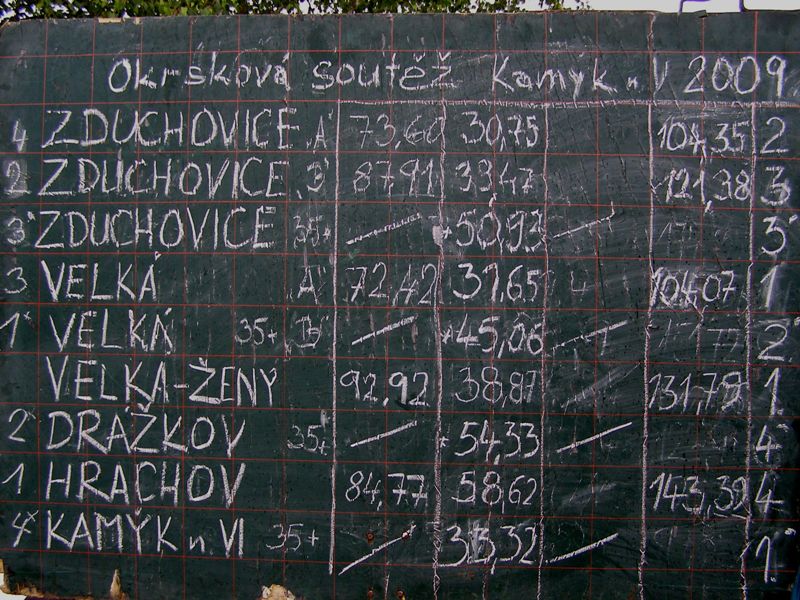 Okrsková soutěž Kamýk n. V 2009
4 ZDUCHOVICE "A" 73,60 30,75 104,35 2
2 ZDUCHOVICE "B" 87,91 33,47 121,38 3
3* ZDUCHOVICE 35+ 50,93 3*
3 VELKÁ "A" 72,42 31,65 104,07 1
1* VELKÁ 35+ "B" 45,06 2*
VELKÁ-ŽENY 92,92 38,87 131,79 1
2* DRÁŽKOV 35+ 54,33 4*
1 HRACHOV 84,77 58,62 143,39 4
4* KAMÝK n. Vl 35+ 33,32 1*